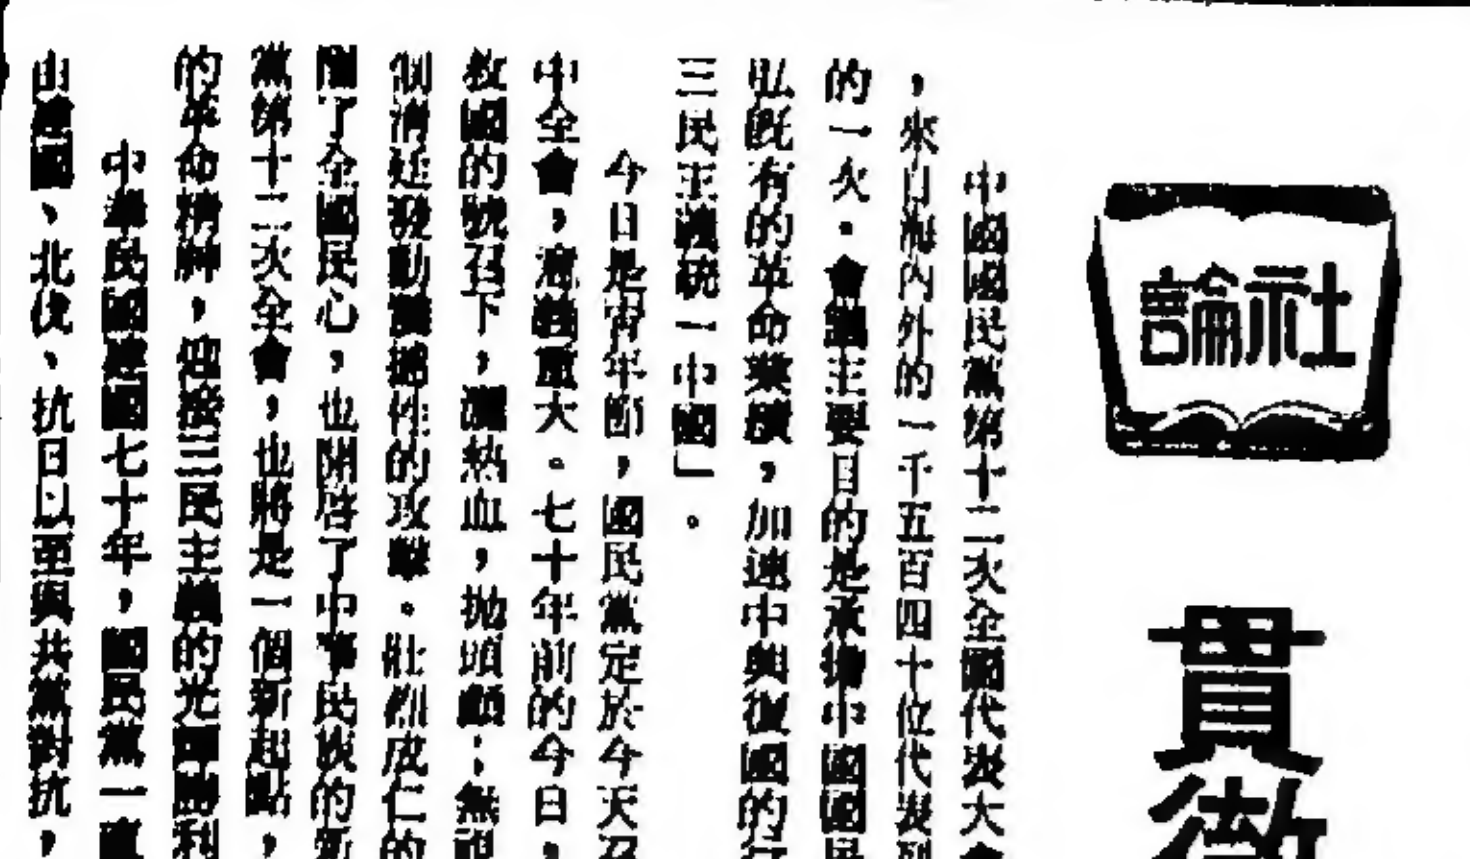 社論
貫徹
中國國民黨第十二次全國代表大會
，來自海內外的一千五百四十位代表列
的一次。會議主要目的是承擔中國國民
弘既有的革命業績，加速中興復國的行
三民主義統一中國」。
今日是青年節，國民黨定於今天召
中全會，意義重大。七十年前的今日，
救國的號召下，灑熱血，拋頭顱；無視
制清廷發動震撼性的攻擊。壯烈成仁的
醒了全國民心，也開啓了中華民族的新
黨第十二次全會，也將是一個新起點，
的革命精神，迎接三民主義的光輝勝利
中華民國建國七十年，國民黨一直
由建國、北伐、抗日以至與共黨對抗，